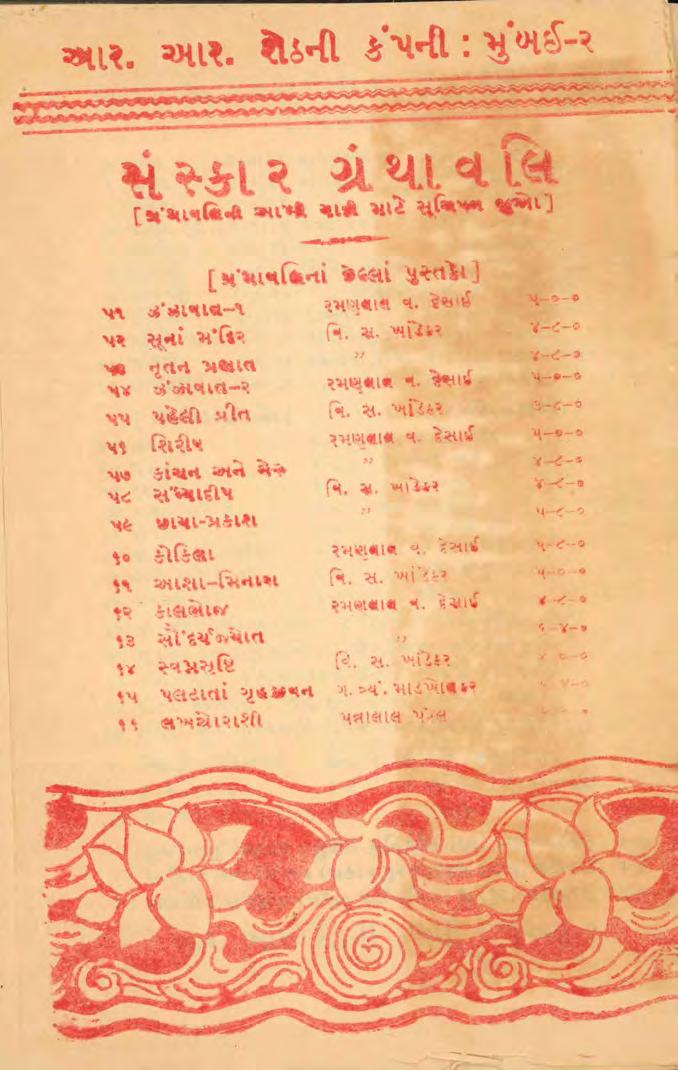 આર. આર. શેઠની કંપની : મુંબઈ-૨
સંસ્કાર ગ્રંથાવલિ
[ ગ્રંથાવલિની આખી યાદી માટે સૂચિપત્ર જુઓ ]
[ ગ્રંથાવલિનાં છેલ્લાં પુસ્તકો ]
૫૧ ઝંઝાવાત-૧ રમણલાલ વ. દેસાઈ ૫-૦-૦
૫૨ સૂનાં મંદિર વિ. સ. ખાંડેકર ૪-૮-૦
૫૩ નૂતન પ્રભાત ,, ૪-૮-૦
૫૪ ઝંઝાવાત-૨ રમણલાલ વ. દેસાઈ ૫-૦-૦
૫૫ પહેલી પ્રીત વિ. સ. ખાંડેકર ૩-૮-૦
૫૬ શિરીષ રમણલાલ વ. દેસાઈ ૫-૦-૦
૫૭ કાંચન અને ગેરુ ,, ૪-૮-૦
૫૮ સંધ્યાદીપ વિ. સ. ખાંડેકર ૪-૮-૦
૫૯ છાયા-પ્રકાશ ,, ૫-૮-૦
૬૦ કોકિલા રમણલાલ વ. દેસાઈ ૫-૮-૦
૬૧ આશા-નિરાશા વિ. સ. ખાંડેકર ૫-૦-૦
૬૨ કાલભોજ રમણલાલ વ. દેસાઈ ૪-૮-૦
૬૩ સૌંદર્યજ્યોત ,, ૬-૪-૦
૬૪ સ્વપ્નસૃષ્ટિ વિ. સ. ખાંડેકર ૪-૦-૦
૬૫ પલટાતાં ગૃહજીવન ગ. ત્ર્યં. માડખોલકર
૬૬ લખચોરાશી પન્નાલાલ પટેલ